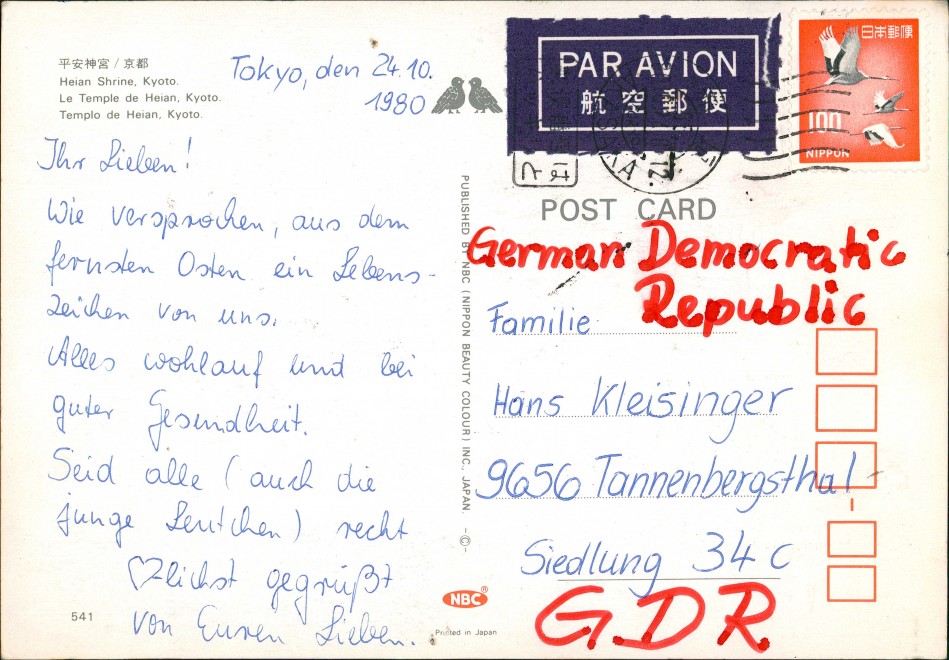 平安神宮 / 京都
Heian Shrine, Kyoto.
Le Temple de Heian, Kyoto.
Templo de Heian, Kyoto.
Tokyo, den 24.10.
1980
Ihr Lieben!
Wie versprochen, aus dem
fernsten Osten ein Lebens-
zeichen von uns.
Alles wohlauf und bei
guter Gesundheit.
Seid alle (auch die
junge Leutchen) recht
♡zlichst gegrüßt
von Euren Lieben.
541
PUBLISHED BY NBC (NIPPON BEAUTY COLOUR) INC., JAPAN. -©-
NBC®
Printed in Japan
PAR AVION
航空郵便
日本郵便
100
NIPPON
POST CARD
German Democratic
Republic
Familie
Hans Kleisinger
9656 Tannenbergsthal-
Siedlung 34c
GDR